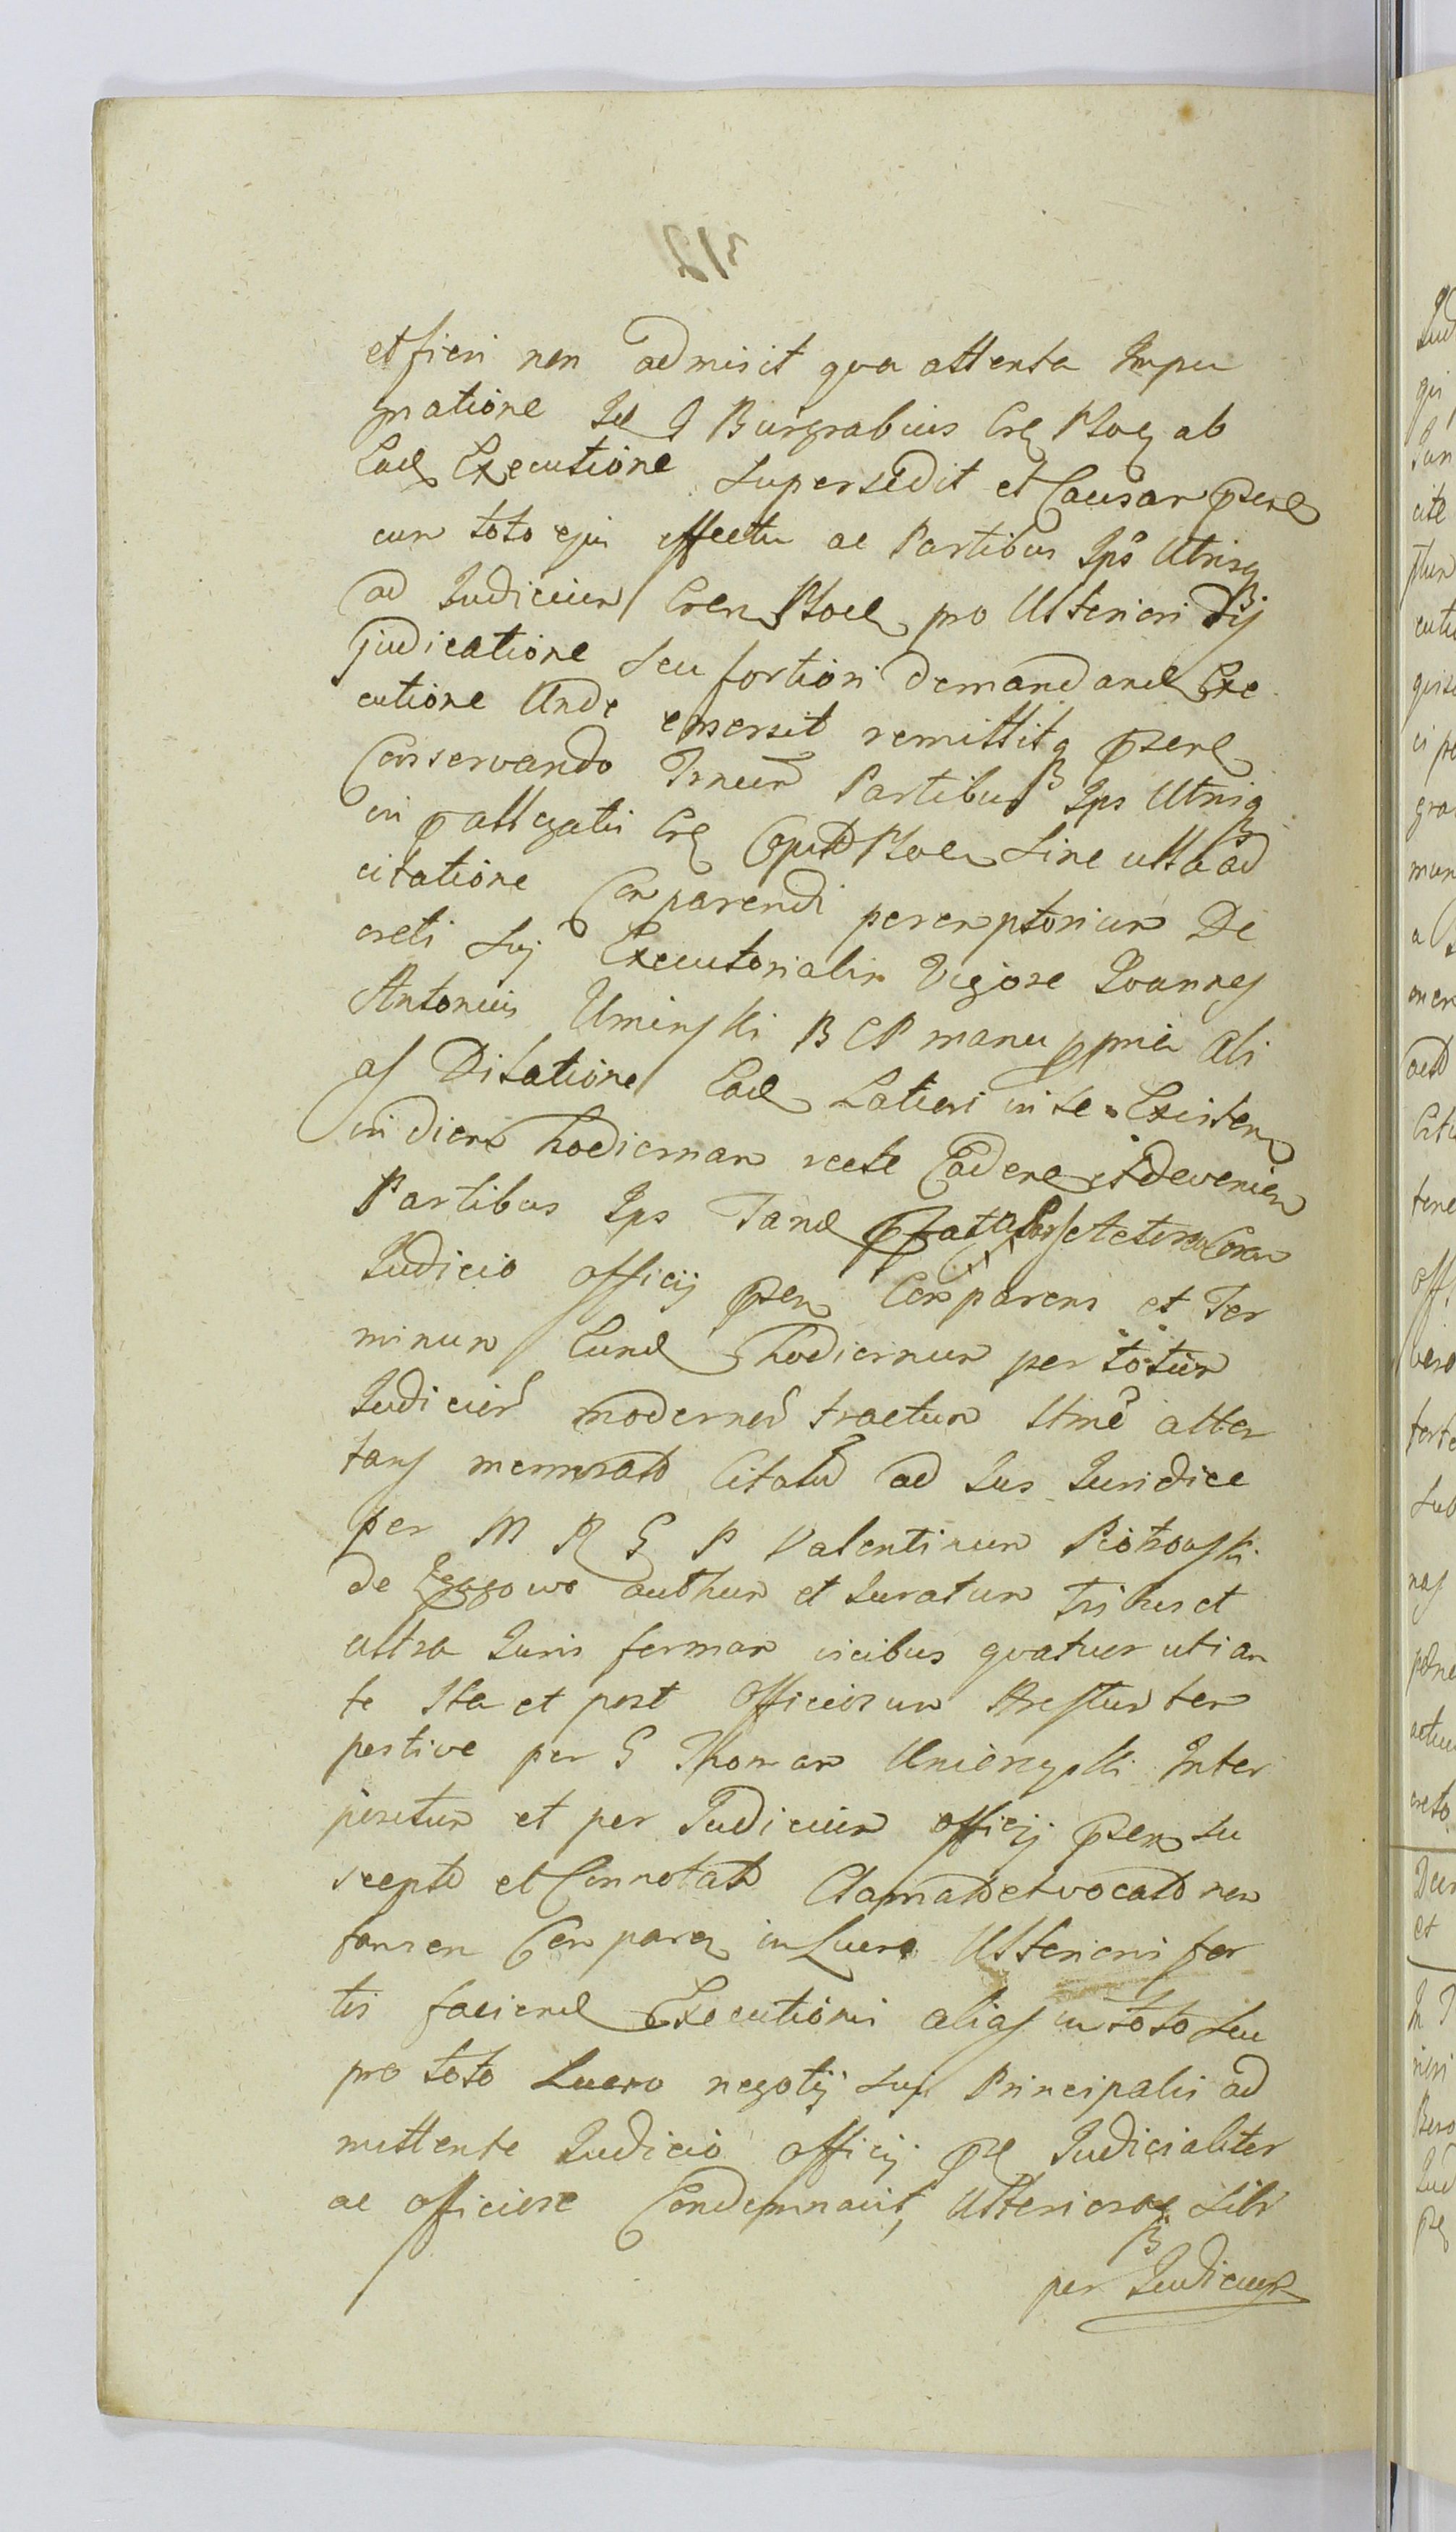 et fieri non admisit qva attenta Impu
gnatione Idẽ G Burgrabius Crẽ Ploc ab
Ead Executione supersedit et Causam psen
cum toto ejus effectu ac Partibus Ips Utrisq
ad Judicium Cren Ploc pro Ulteriori Dij
judicatione seu fortiori demandand Exe
cutione Unde emersit remittit psen
Conservando Trnum Partibus Ips Utrisq
in allegatis Crẽ Caput Ploc sine ulla ad
citatione Comparendi peremptorium De
creti Suj Executorialis Vigore Joannes
Antonius Uminski B C P manu ppria Ali
as Dilatione Ead Latiori in se Existen
in diem hodiernam recte Caden et devenien
Partibus Ips Tand Actorea Coram
Judicio Officij psen Comparens et Ter
minum Eund hodiernum per totum
Judicium modernum tractum Ulme atten
tans memorat Citatum ad Jus Juridice
per M R G P Valentinum Piotrowski
de authum et Juratum tribus et
ultra Juris formam vicibus qvatuor uti an
te Ita et post Officiosum Arestum tem
pestive per G Thomam Inter
positum et per Judicium officij psen su
sceptũ et Connotatũ Clamatũ et vocatũ non
tamen Comparen in Lucro Ulterioris for
tis faciend Executionis alias in toto seu
pro toto Lucro negotij Suj Principalis ad
mittente Judicio officij ps Judicialiter
ac officiose Condemnavit, Ulteriorem Sibi
per Judicium